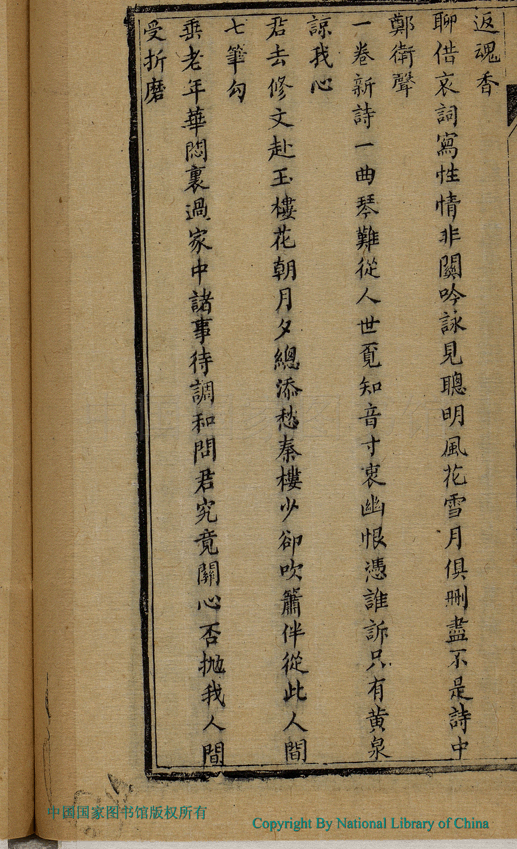 返魂香
聊借哀詞寫性情非關吟詠見聰明風花雪月俱刪盡不是詩中
鄭衛聲
一卷新詩一曲琴難從人世覓知音寸衷幽恨憑誰訴只有黄泉
諒我心
君去修文赴玉樓花朝月夕總添愁秦樓少卻吹簫伴從此人間
七筆勾
垂老年華悶裏過家中諸事待調和問君究竟關心否抛我人間
受折磨
中国国家图书馆版权所有
Copyright By National Library of China